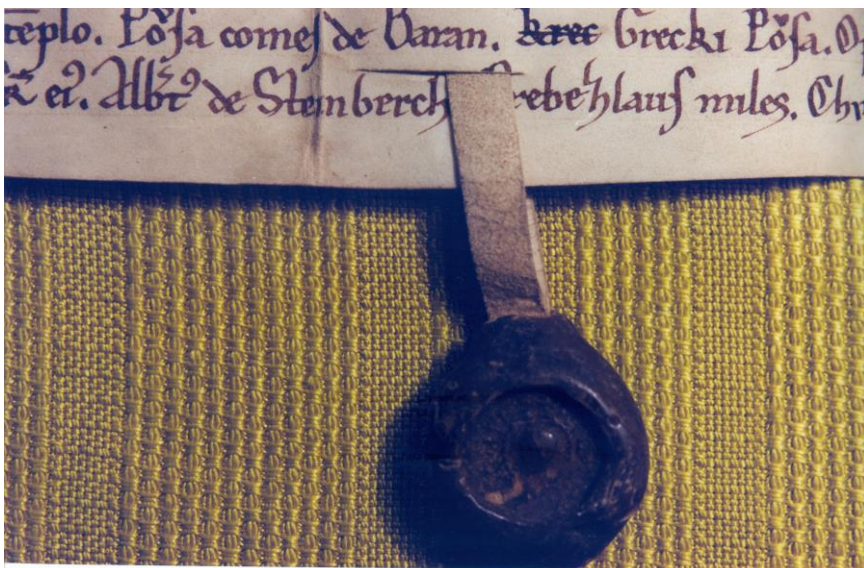 teplo. Posa comes de Baran. Grecki Posa.
ei9. Albt9 de Sternberch rebehlaus miles. Ch